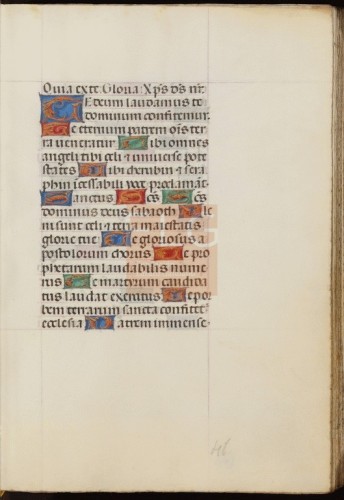 Quia exte. Gloria. Xp̄s dn̄s nr̄.
TE deum laudamus te
dominum confitemur.
Te eternum patrem oīs ter
ra veneratur Tibi omnes
angeli tibi celi et universe pote
states Tibi cherubin et sera
phin īcessabili voce proclamāt
Sanctus Sc̄s Sc̄s
dominus deus sabaoth Ple
ni sunt celi et terra maiestatis
glorie tue Te gloriosus a
postolorum chorus Te pro
phetarum laudabilis nume
rus Te martyrum candida
tus laudat exercitus Te por
bem terrarum sancta confitet᷒
ecclesia Patrem immense